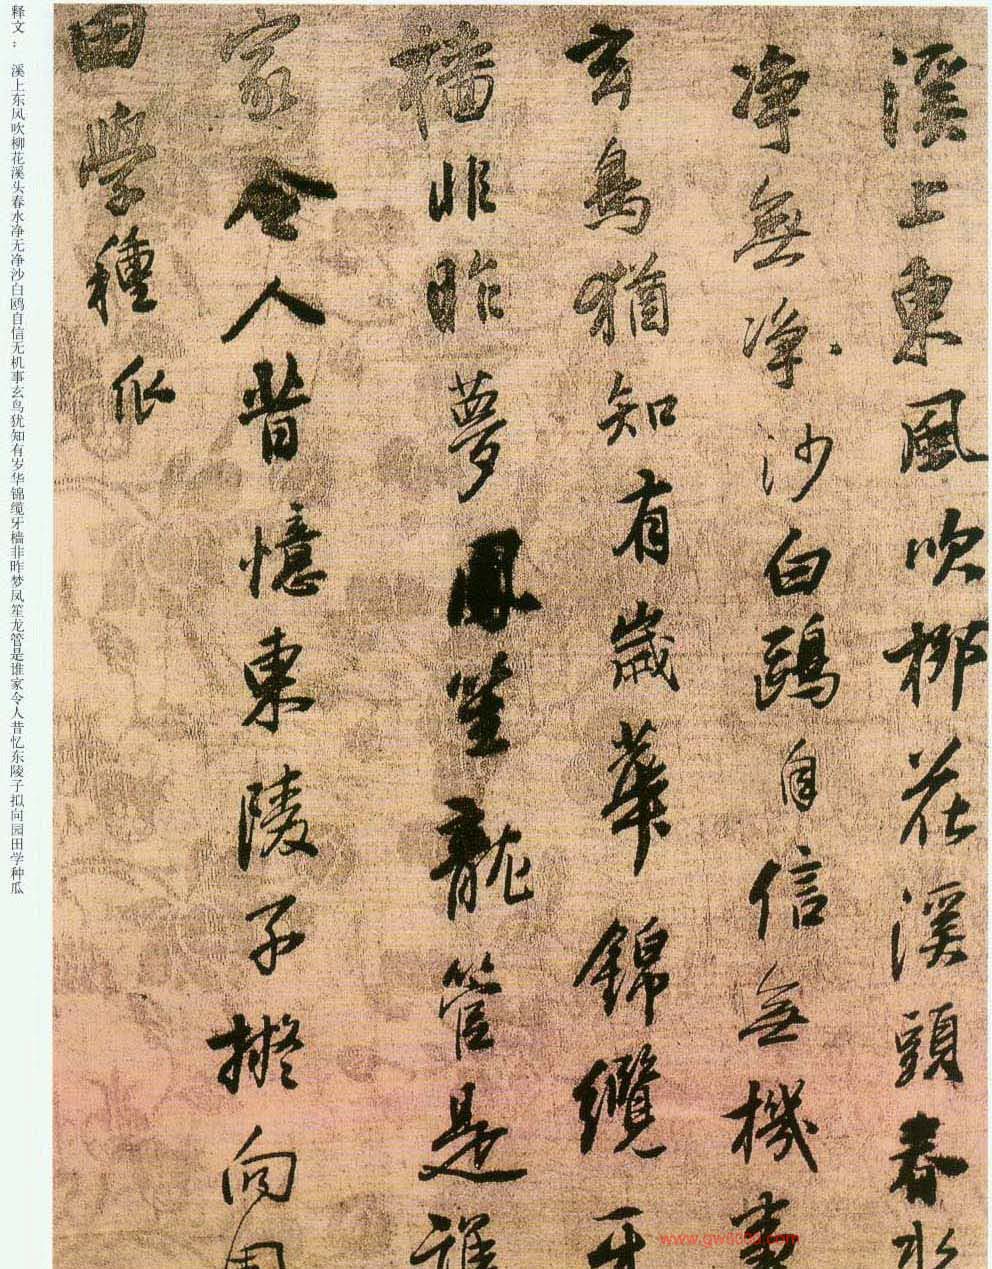 溪上東風吹柳花溪頭春水
净無净沙白鷗自信無機事
玄鳥猶知有歲華錦纜牙
檣非昨夢鳳笙龍管是誰
家令人昔憶東陵子擬向園
田學種瓜
释文： 溪上东风吹柳花溪头春水净无净沙白鸥自信无机事玄鸟犹知有岁华锦缆牙樯非昨梦凤笙龙管是谁家令人昔忆东陵子拟向园田学种瓜